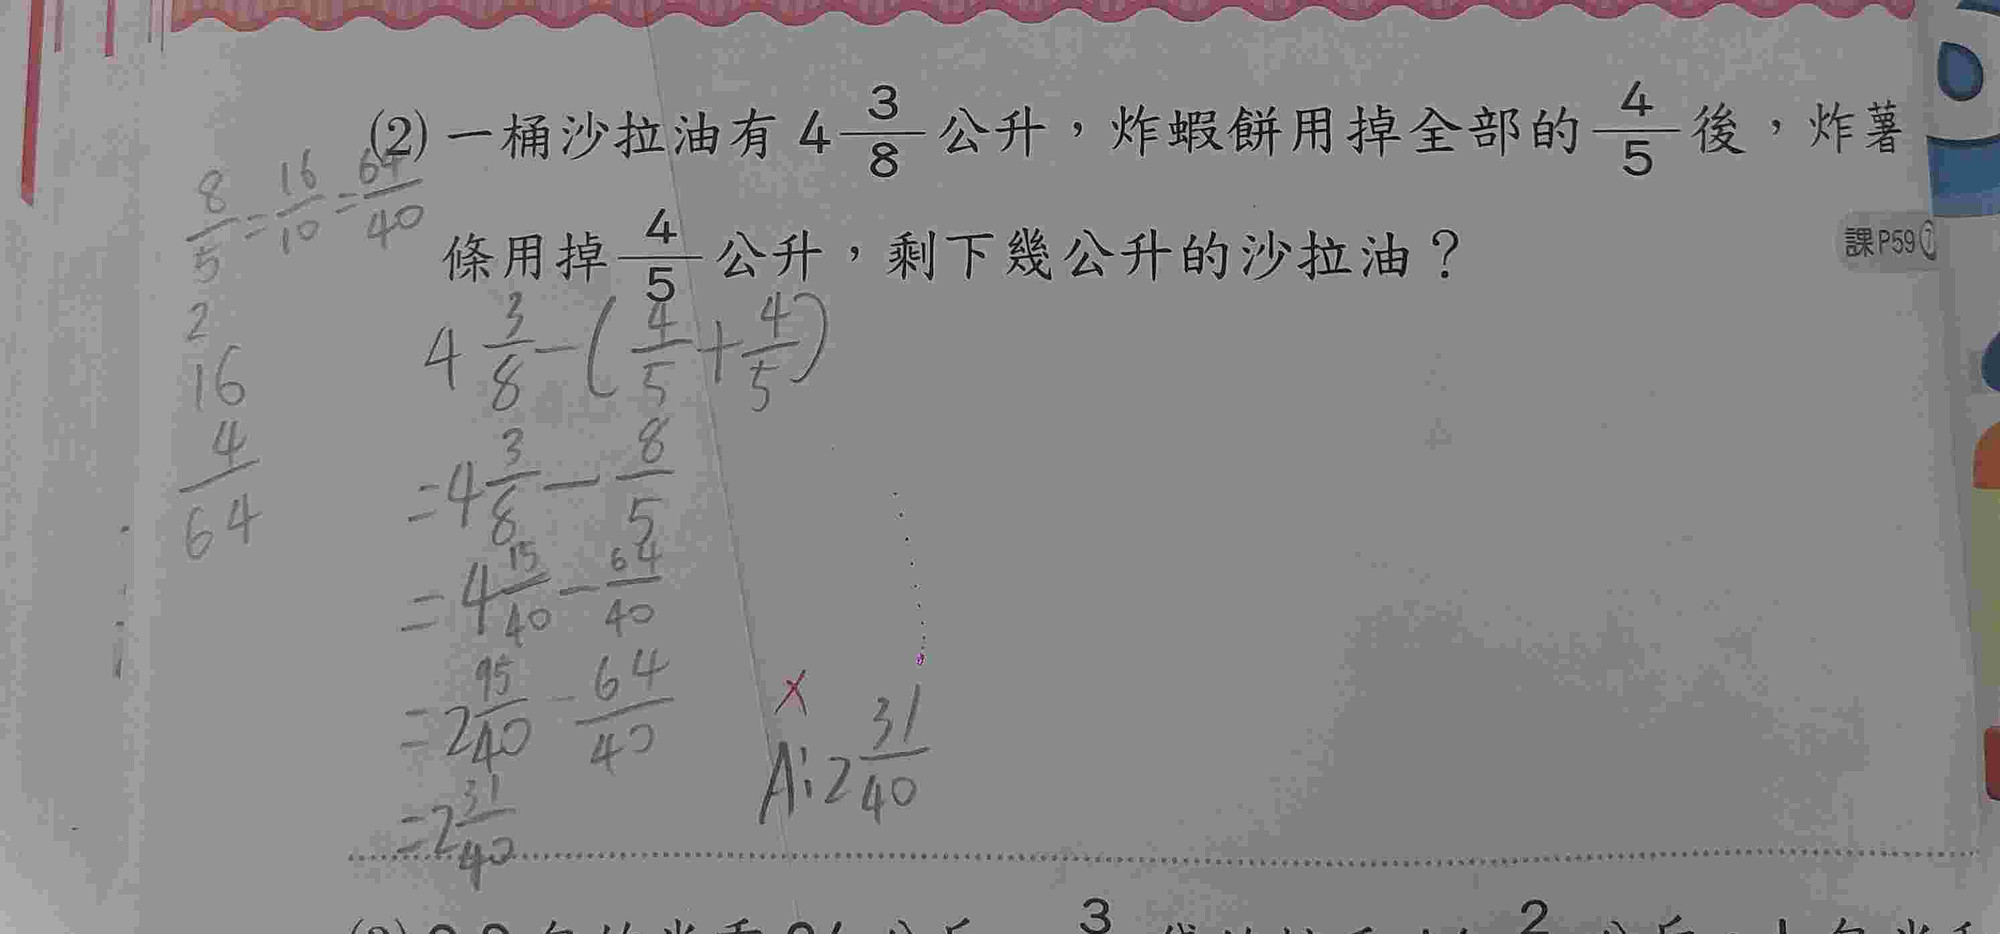 (2) 一桶沙拉油有 4 3/8 公升，炸蝦餅用掉全部的 4/5 後，炸薯
條用掉 4/5 公升，剩下幾公升的沙拉油？
課P59①
8/5 = 16/10 = 64/40
2
16
4
64
4 3/8 - ( 4/5 + 4/5 )
= 4 3/8 - 8/5
= 4 15/40 - 64/40
= 2 95/40 - 64/40
= 2 31/40
×
A: 2 31/40
3
2